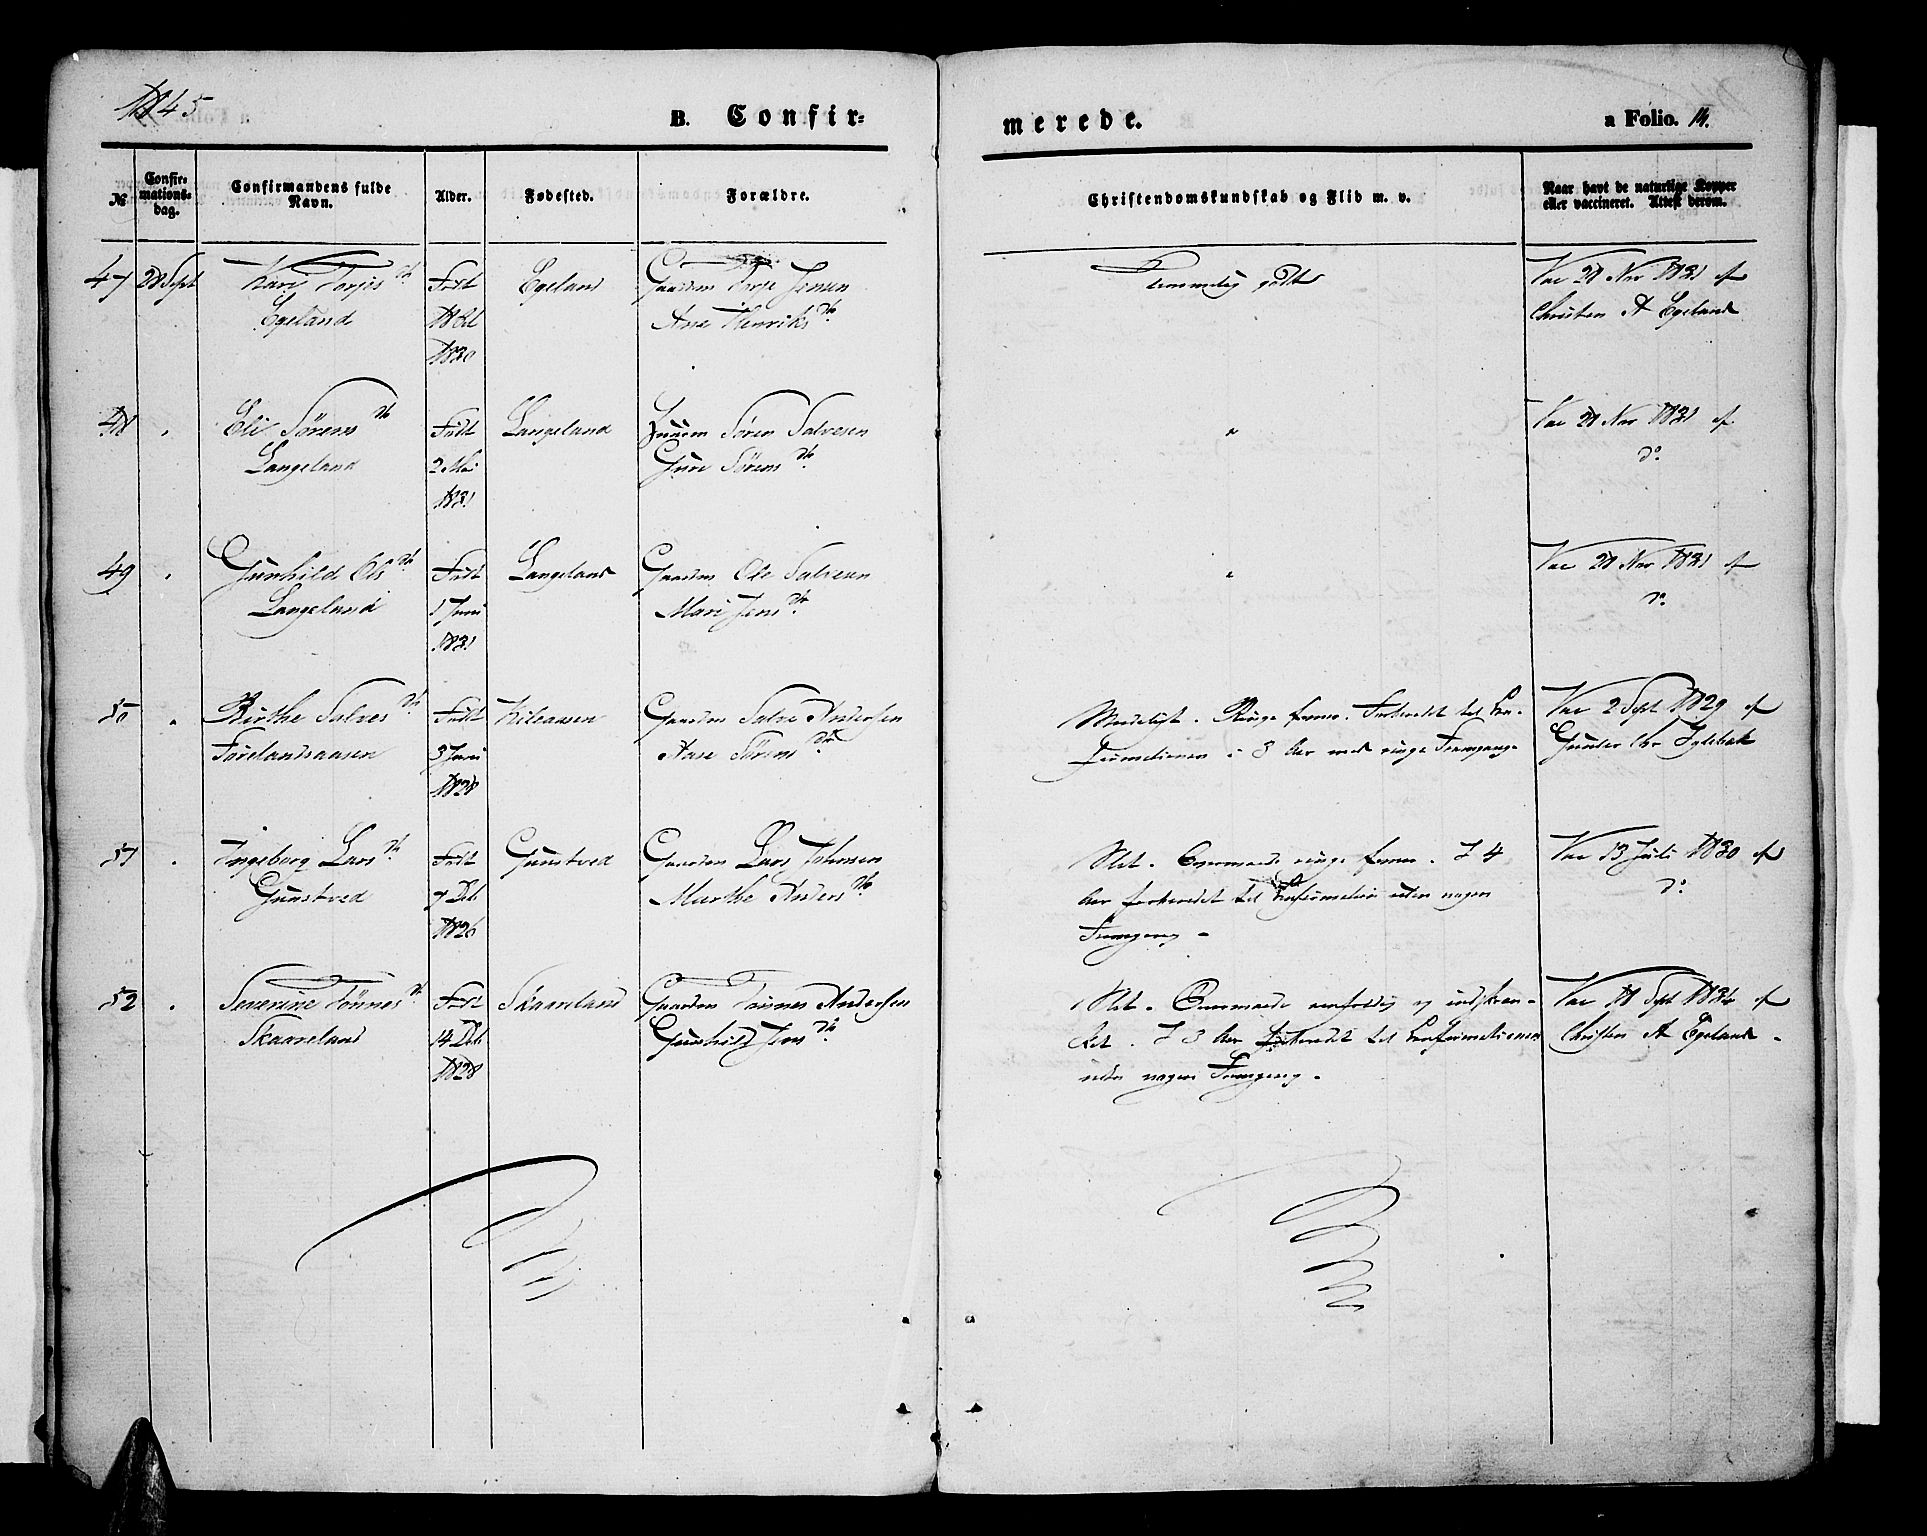 1845
B. Confir=
merede.
a Folio. 14.
№
Confir=
mations=
dag.
Confirmandens fulde
Navn.
Alder.
Fødested.
Forældre.
Christendomskundskab og Flid m. v.
Naar havt de naturlige Kopper
eller vaccineret. Attest derom.
47
28 Sept
Kari Torjes dtr
Egeland
Født
1830
Egeland
Gaardm Torje Jensen
Ane Henriks dtr
Temmelig godt
Vac 28 Nov 1831 af
Christen A Egeland
48
Eli Sørens dtr
Langeland
Født
2 Mai
1831
Langeland
Søren Salvesen
Gure Sørens dtr
"
Vac 28 Nov 1831 af
do
49
Gunhild Ols dtr
Langeland
Født
1 Juni
1831
Langeland
Gaardm Ole Salvesen
Mari Jens dtr
"
Vac 28 Nov 1831 af
do
50
Birthe Salves dtr
Førelandsaasen
Født
3 Juni
1828
Kileaasen
Gaardm Salve Andersen
Aase Sørens dtr
Maadeligt. Ringe Evner. Forberedet til Con-
firmationen i 3 Aar med ringe Fremgang.
Vac 2 Sept 1829 af
Gunder Chr
51
Ingeborg Lars dtr
Gunstved
Født
7 Deb
1826
Gunstved
Gaardm Lars Johnsen
Marthe Anders dtr
Slet. Overmaade ringe Evner. I 4
Aar forberedet til Confirmation uden nogen
Fremgang -
Vac 13 Juli 1830 af
do
52
Severine Tønnes dtr
Skaareland
Født
14 Deb
1828
Skaareland
Gaardm Tønnes Andersen
Gunhild Jens dtr
Slet. Overmaade eenfoldig og indskræn-
ket. I 3 Aar forberedet til Confirmationen
uden nogen Fremgang.
Vac 18 Sept 1834 af
Christen A Egeland.